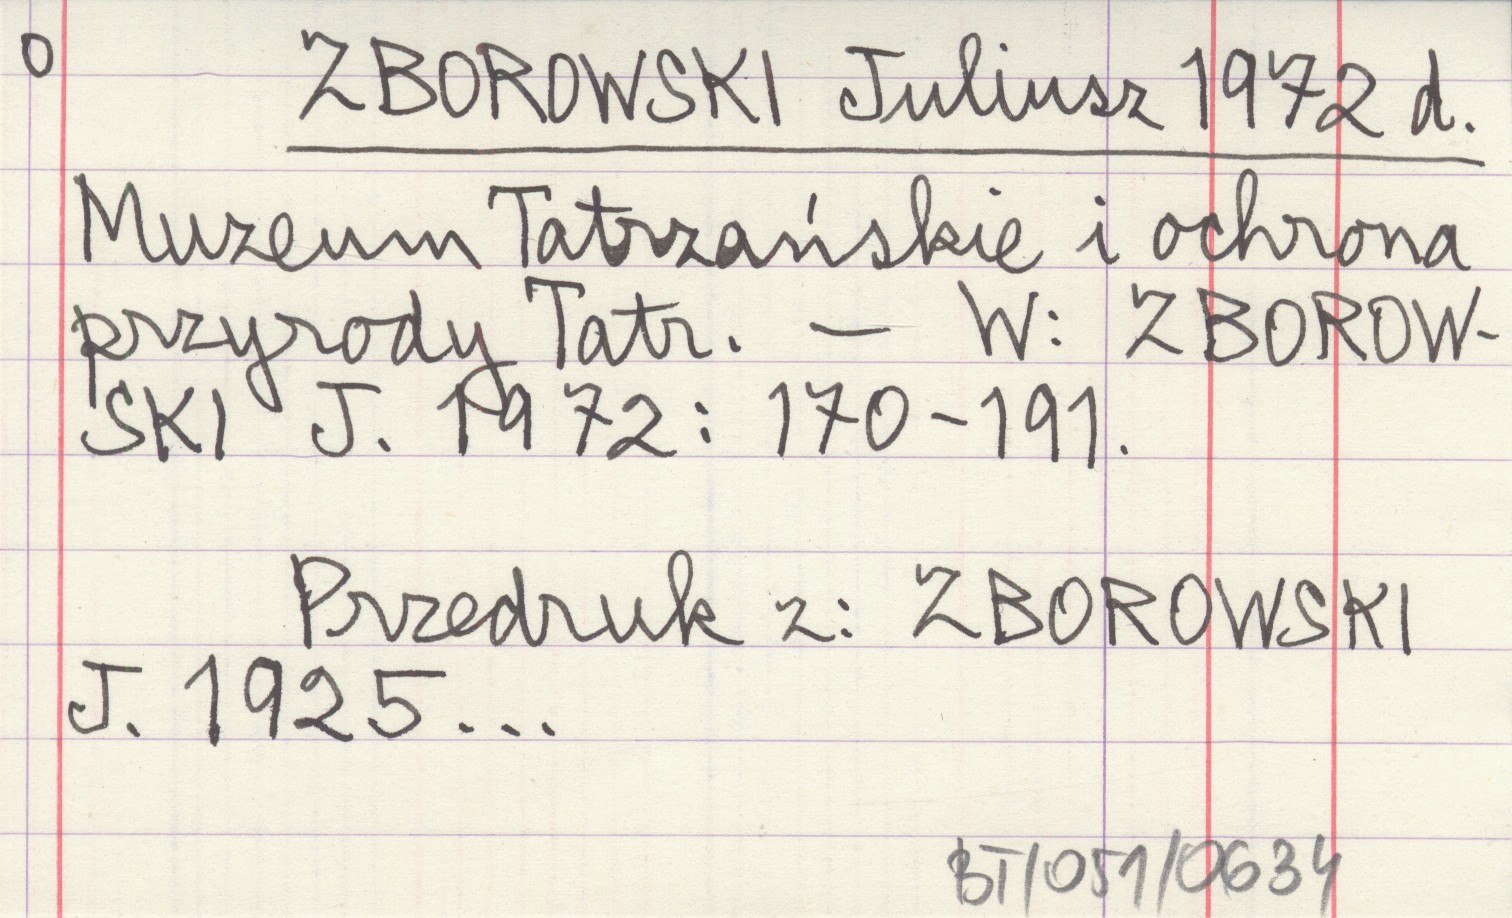 0 ZBOROWSKI Juliusz 1972 d.
Muzeum Tatrzańskie i ochrona
przyrody Tatr. — W: ZBOROW-
SKI J. 1972: 170-191.
Przedruk z: ZBOROWSKI
J. 1925...
BT/051/0634